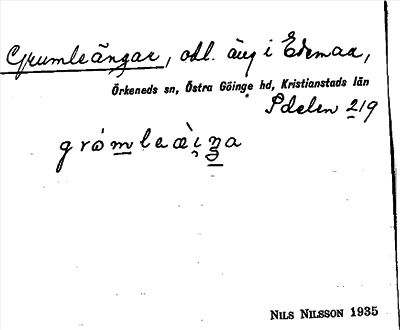 Grumleängar, odl. äng i Ekemaa,
Örkeneds sn, Östra Göinge hd, Kristianstads län
Sdelen 219
NILS NILSSON 1935